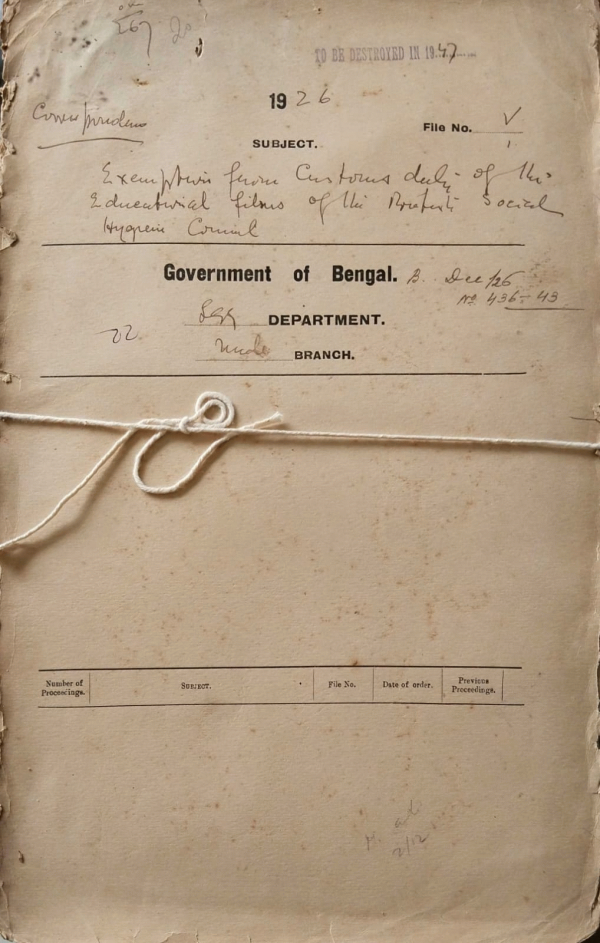 267
TO BE DESTROYED IN 1947
1926
Correspondence
File No. V
1
SUBJECT.
Exemption from Customs duty of the
Educational films of the British Social
Hygiene Council
Government of Bengal. B. Dec/26
No 436-43
DEPARTMENT.
22
BRANCH.
Number of Proceedings. SUBJECT. File No. Date of order. Previous Proceedings.
2/12